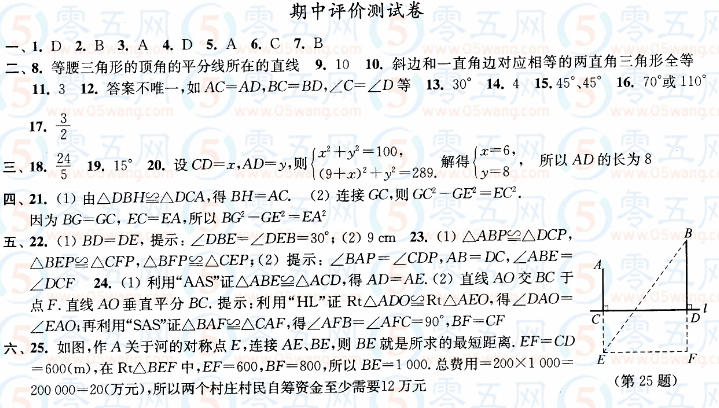 期中评价测试卷
一、1. D 2. B 3. A 4. D 5. A 6. C 7. B
二、8. 等腰三角形的顶角的平分线所在的直线 9. 10 10. 斜边和一直角边对应相等的两直角三角形全等
11. 3 12. 答案不唯一,如 AC=AD,BC=BD,∠C=∠D 等 13. 30° 14. 4 15. 45°、45° 16. 70°或 110°
17. 3/2
三、18. 24/5 19. 15° 20. 设 CD=x,AD=y,则{x²+y²=100, (9+x)²+y²=289. 解得{x=6, y=8, 所以 AD 的长为 8
四、21. (1) 由△DBH≌△DCA,得 BH=AC. (2) 连接 GC,则 GC²-GE²=EC².
因为 BG=GC, EC=EA,所以 BG²-GE²=EA²
五、22. (1) BD=DE, 提示: ∠DBE=∠DEB=30°; (2) 9 cm 23. (1) △ABP≌△DCP,
△BEP≌△CFP, △BFP≌△CEP; (2) 提示: ∠BAP=∠CDP, AB=DC, ∠ABE=
∠DCF 24. (1) 利用“AAS”证△ABE≌△ACD,得 AD=AE. (2) 直线 AO 交 BC 于
点 F. 直线 AO 垂直平分 BC. 提示:利用“HL”证 Rt△ADO≌Rt△AEO,得∠DAO=
∠EAO;再利用“SAS”证△BAF≌△CAF,得∠AFB=∠AFC=90°,BF=CF
六、25. 如图,作 A 关于河的对称点 E,连接 AE、BE,则 BE 就是所求的最短距离. EF=CD
=600(m),在 Rt△BEF 中,EF=600,BF=800,所以 BE=1 000. 总费用=200×1 000=
200 000=20(万元),所以两个村庄村民自筹资金至少需要12 万元
B
A
C
D
l
E
F
(第 25 题)
零五网
www.05wang.com